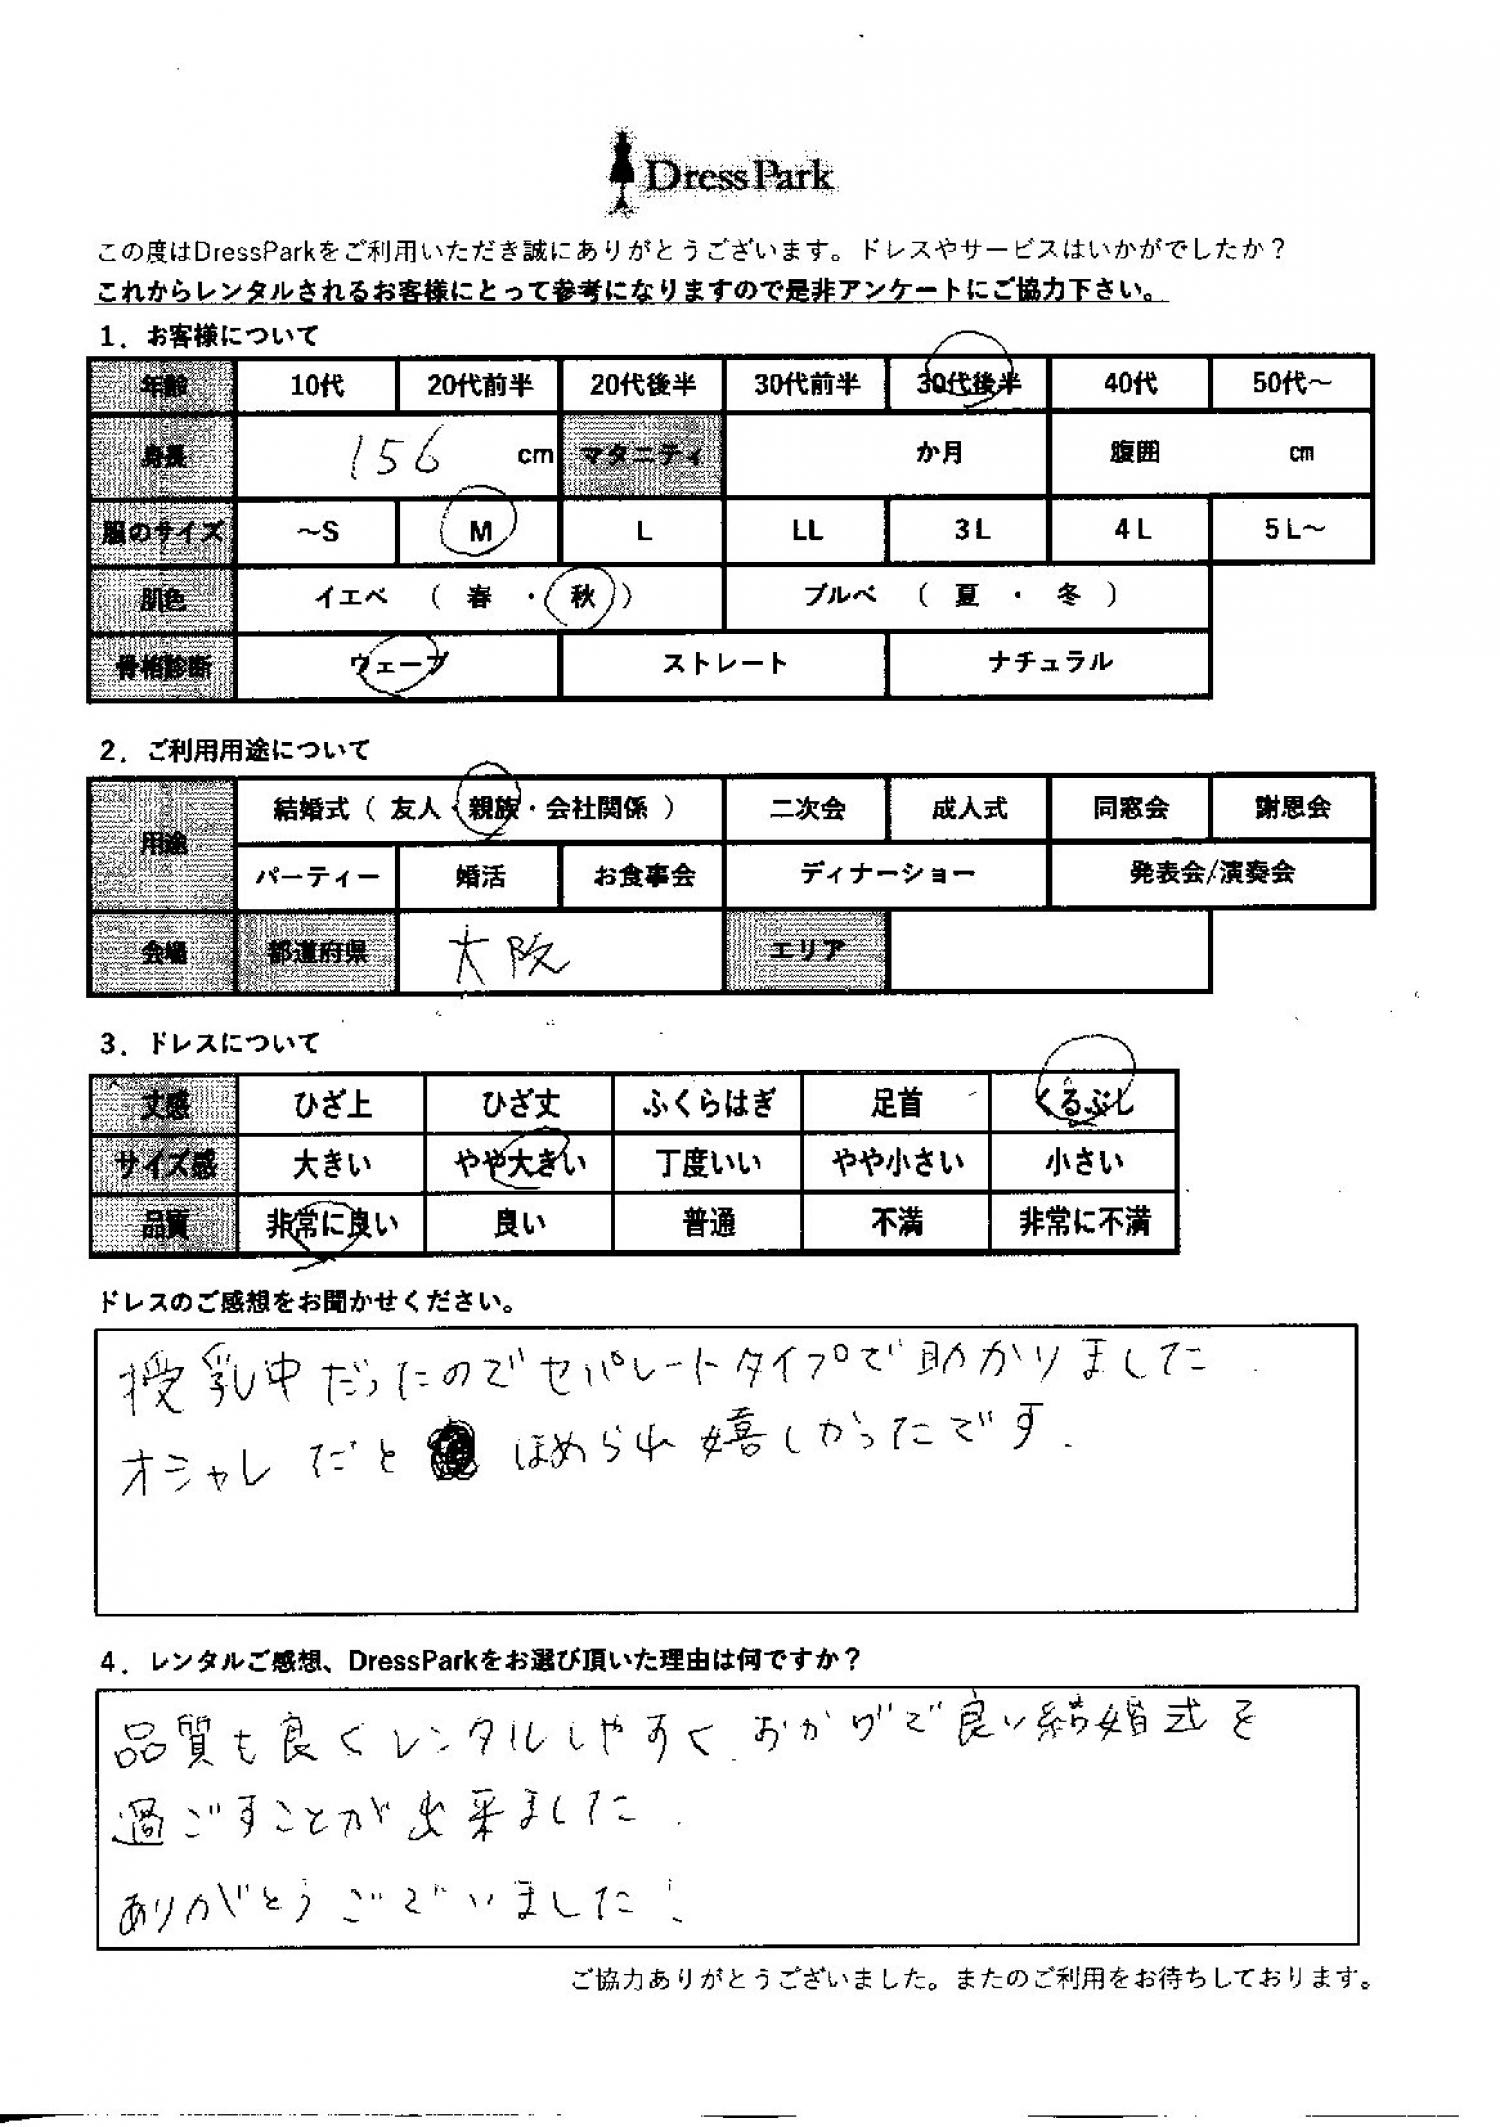 DressPark
この度はDressParkをご利用いただき誠にありがとうございます。ドレスやサービスはいかがでしたか？
これからレンタルされるお客様にとって参考になりますので是非アンケートにご協力下さい。
1．お客様について
年齢 10代 20代前半 20代後半 30代前半 30代後半 40代 50代～
身長 156 cm マタニティ か月 腹囲 cm
服のサイズ ～S M L LL 3L 4L 5L～
肌色 イエベ （ 春 ・ 秋 ） ブルベ （ 夏 ・ 冬 ）
骨格診断 ウェーブ ストレート ナチュラル
2．ご利用用途について
用途 結婚式（ 友人・親族・会社関係 ） 二次会 成人式 同窓会 謝恩会
パーティー 婚活 お食事会 ディナーショー 発表会/演奏会
会場 都道府県 大阪 エリア
3．ドレスについて
丈感 ひざ上 ひざ丈 ふくらはぎ 足首 くるぶし
サイズ感 大きい やや大きい 丁度いい やや小さい 小さい
品質 非常に良い 良い 普通 不満 非常に不満
ドレスのご感想をお聞かせください。
授乳中だったのでセパレートタイプで助かりました.
オシャレだと ほめられ嬉しかったです.
4．レンタルご感想、DressParkをお選び頂いた理由は何ですか？
品質も良くレンタルしやすく.おかげで良い結婚式を
過ごすことが出来ました.
ありがとうございました!
ご協力ありがとうございました。またのご利用をお待ちしております。